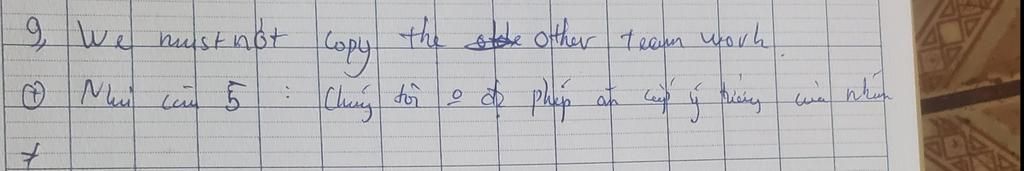 9, We must not copy the other team work.
⊕ Như câu 5 : Chúng tôi o đc phép ăn cắp ý tưởng của nhóm
+